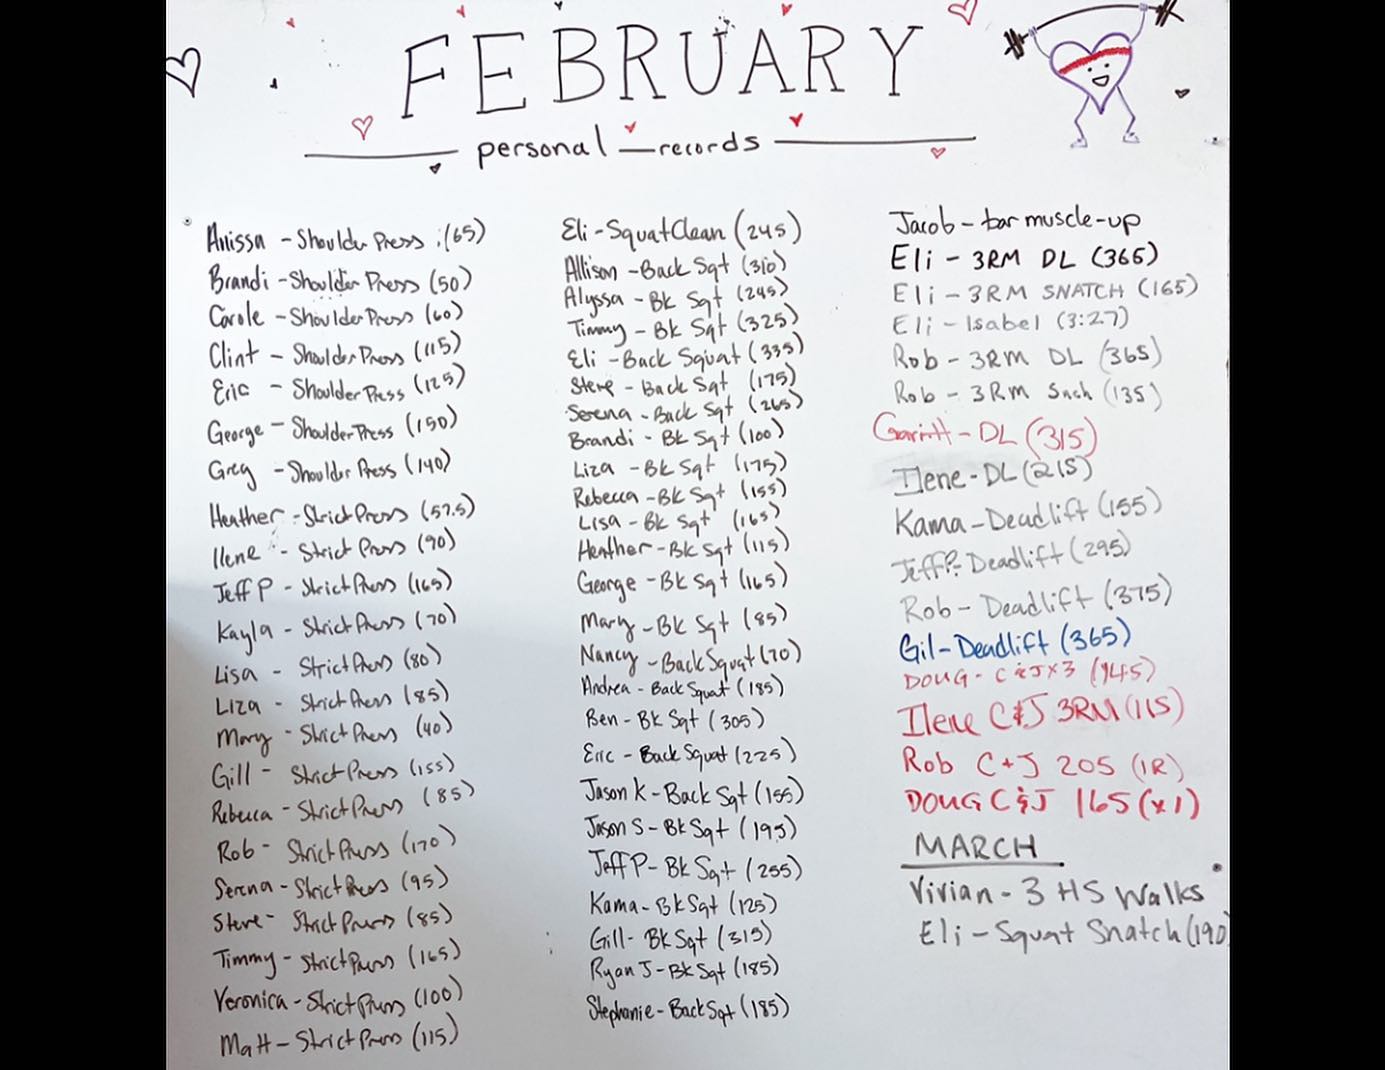 FEBRUARY
personal records
Anissa - Shoulder Press :(65)
Brandi - Shoulder Press (50)
Carole - Shoulder Press (60)
Clint - Shoulder Press (115)
Eric - Shoulder Press (125)
George - Shoulder Press (150)
Greg - Shoulder Press (140)
Heather - Strict Press (57.5)
Ilene - Strict Press (90)
Jeff P - Strict Press (165)
Kayla - Strict Press (70)
Lisa - Strict Press (80)
Liza - Strict Press (85)
Mary - Strict Press (40)
Gill - Strict Press (155)
Rebecca - Strict Press (85)
Rob - Strict Press (170)
Serena - Strict Press (95)
Steve - Strict Press (85)
Timmy - Strict Press (165)
Veronica - Strict Press (100)
Matt - Strict Press (115)
Eli - Squat Clean (245)
Allison - Back Sqt (310)
Alyssa - Bk Sqt (245)
Timmy - Bk Sqt (325)
Eli - Back Squat (335)
Steve - Back Sqt (175)
Serena - Back Sqt (265)
Brandi - Bk Sqt (100)
Liza - Bk Sqt (175)
Rebecca - Bk Sqt (155)
Lisa - Bk Sqt (165)
Heather - Bk Sqt (115)
George - Bk Sqt (165)
Mary - Bk Sqt (85)
Nancy - Back Squat (70)
Andrea - Back Squat (185)
Ben - Bk Sqt (305)
Eric - Back Squat (225)
Jason K - Back Sqt (155)
Jason S - Bk Sqt (195)
Jeff P - Bk Sqt (255)
Kama - Bk Sqt (125)
Gill - Bk Sqt (315)
Ryan J - Bk Sqt (185)
Stephanie - Back Sqt (185)
Jacob - bar muscle-up
Eli - 3RM DL (365)
Eli - 3RM SNATCH (165)
Eli - Isabel (3:27)
Rob - 3RM DL (365)
Rob - 3RM Snch (135)
DL (315)
Ilene - DL (215)
Kama - Deadlift (155)
Jeff P - Deadlift (295)
Rob - Deadlift (375)
Gil - Deadlift (365)
DOUG - C&J x3 (145)
Ilene C&J 3RM (115)
Rob C+J 205 (1R)
DOUG C&J 165 (x1)
MARCH
Vivian - 3 HS Walks
Eli - Squat Snatch (190)